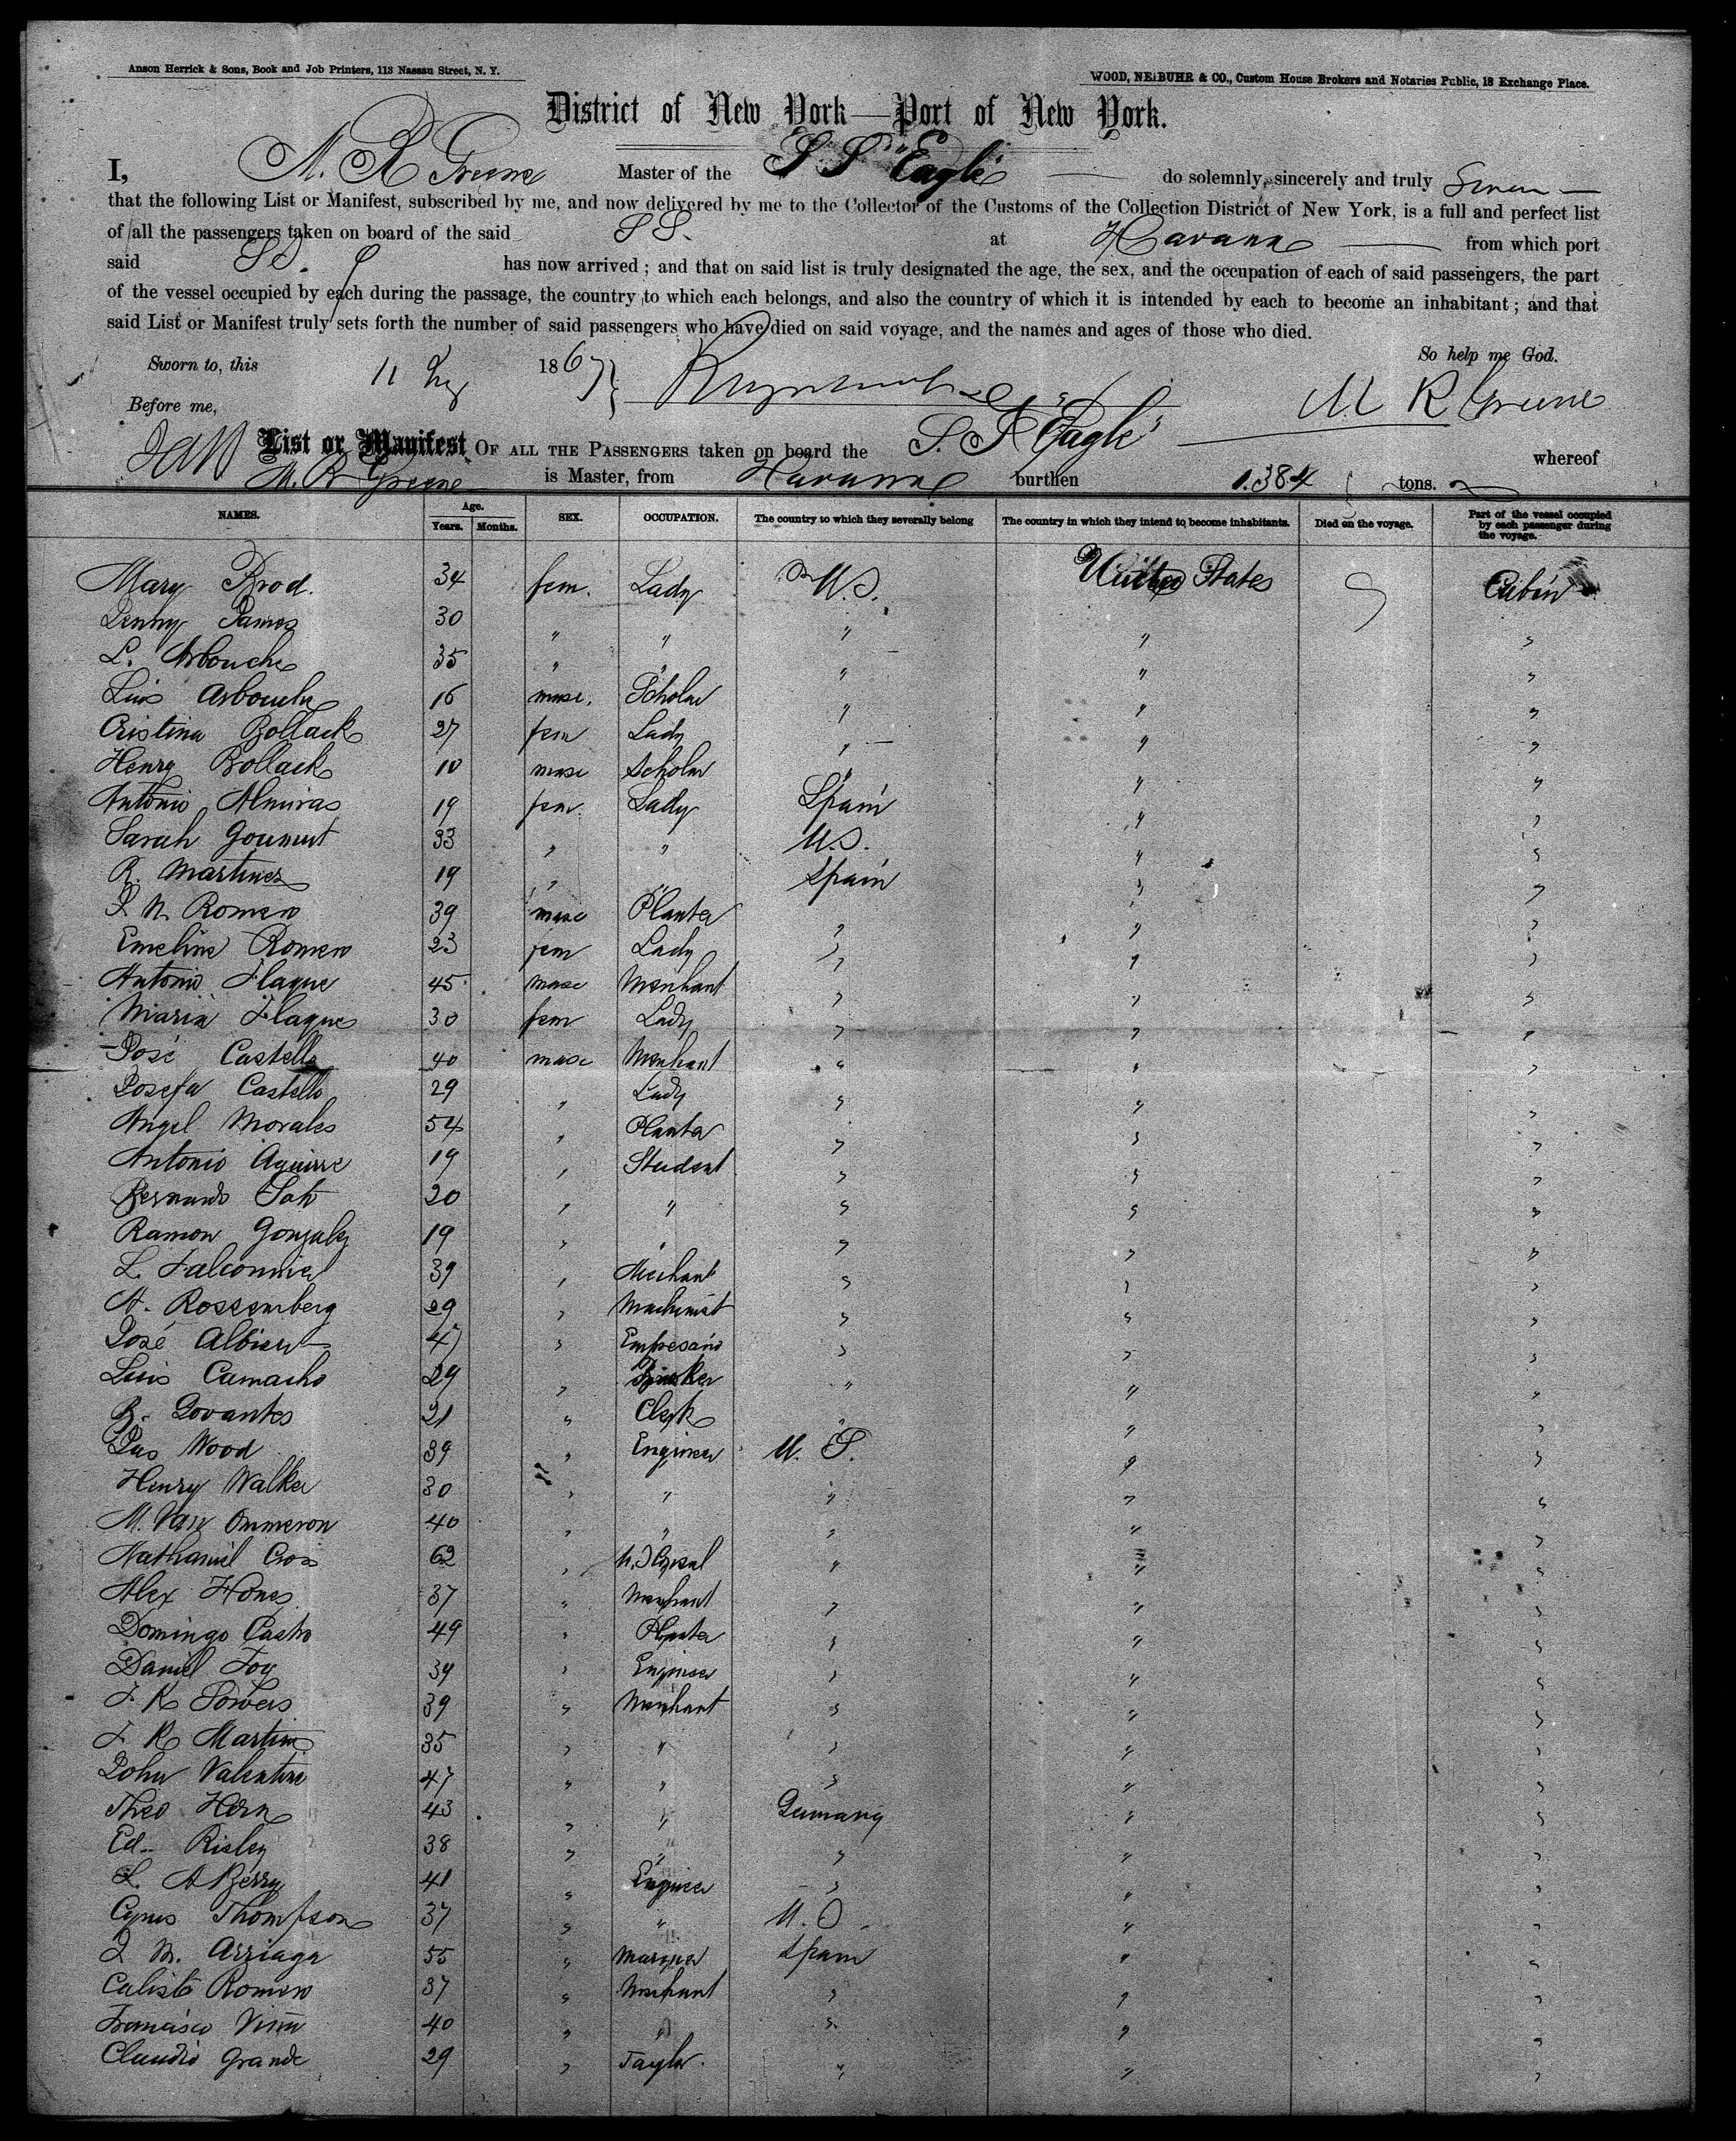 Anson Herrick & Sons, Book and Job Printers, 113 Nassau Street, N. Y.
WOOD, NEIBUHR & CO., Custom House Brokers and Notaries Public, 18 Exchange Place.
District of New York—Port of New York.
I, M. R Greene Master of the S S "Eagle" do solemnly, sincerely and truly Swear
that the following List or Manifest, subscribed by me, and now delivered by me to the Collector of the Customs of the Collection District of New York, is a full and perfect list
of all the passengers taken on board of the said SS. at Havana from which port
said SS. has now arrived; and that on said list is truly designated the age, the sex, and the occupation of each of said passengers, the part
of the vessel occupied by each during the passage, the country to which each belongs, and also the country of which it is intended by each to become an inhabitant; and that
said List or Manifest truly sets forth the number of said passengers who have died on said voyage, and the names and ages of those who died.
Sworn to, this 11 1867 So help me God.
Before me, M R Greene
List or Manifest OF ALL THE PASSENGERS taken on board the S. S "Eagle" whereof
M. R Greene is Master, from Havana burthen 1.384 tons.
NAMES. Age. Years. Months. SEX. OCCUPATION. The country to which they severally belong The country in which they intend to become inhabitants. Died on the voyage. Part of the vessel occupied by each passenger during the voyage.
Mary Brod. 34 fem. Lady U.S. United States Cabin
Jenny James 30 " " " " "
L. Arbouche 35 " " " " "
Luis Arbouche 16 masc. Scholar " " "
Cristina Bollack 27 fem Lady " " "
Henry Bollack 10 masc Scholar " " "
Antonio Almiras 19 fem. Lady Spain " "
Sarah 33 " " U.S. " "
R. Martinez 19 " " Spain " "
J N. Romero 39 masc Planter " " "
Emeline Romero 23 fem Lady " " "
Antonio Flaque 45 masc Merchant " " "
Maria Flaque 30 fem Lady " " "
José Castello 40 masc Merchant " " "
Josefa Castello 29 " Lady " " "
Angel Morales 54 " Planter " " "
Antonio Aguirre 19 " Student " " "
Bernardo Soto 20 " " " " "
Ramon Gonzalez 19 " " " " "
L. Falconnier 39 " Merchant " " "
A. Rossemberg 29 " Machinist " " "
José Albisu 47 " Empresario " " "
Luis Camacho 29 " " " "
R. Govantes 21 " Clerk " " "
Wood 39 " Engineer U. S. " "
Henry Walker 30 " " " " "
M. Van Ommeron 40 " " " " "
Nathaniel Cross 62 " " " "
Alex Hones 37 " Merchant " " "
Domingo Castro 49 " Planter " " "
Daniel Foy 34 " Engineer " " "
F. K Sowers 39 " Merchant " " "
F. R Martin 35 " " " " "
John Valentine 47 " " " " "
Theo Horn 43 " " Germany " "
Ed. Risley 38 " " " " "
L. A Berry 41 " Engineer " " "
Cyrus Thompson 37 " " U.S. " "
J M. Arriaga 55 " Mariner Spain " "
Calisto Romero 37 " Merchant " " "
Francisco 40 " " " " "
Claudio Grande 29 " Taylor. " " "